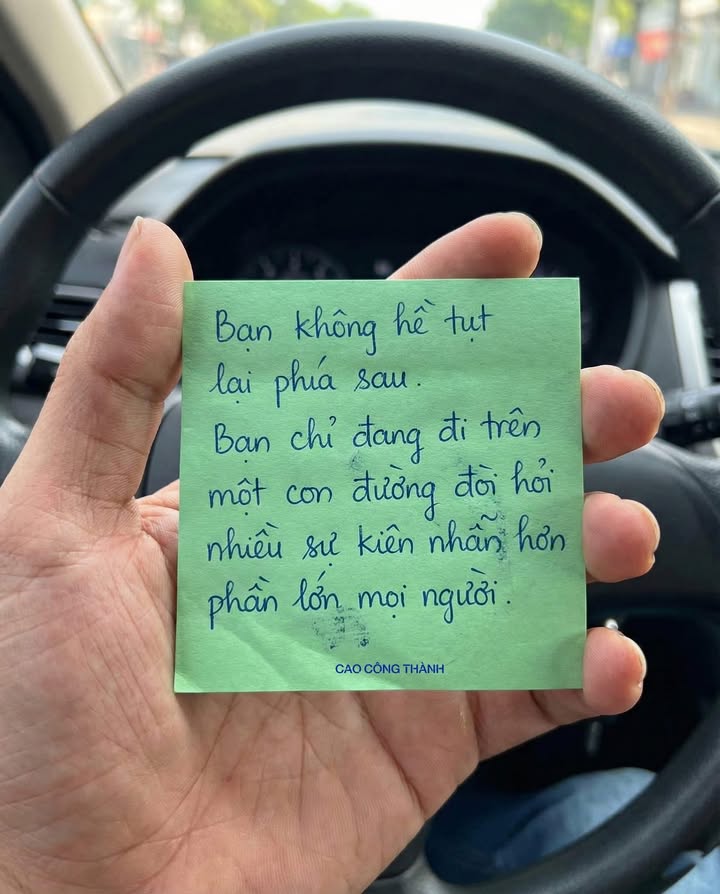 Bạn không hề tụt
lại phía sau.
Bạn chỉ đang đi trên
một con đường đòi hỏi
nhiều sự kiên nhẫn hơn
phần lớn mọi người.
CAO CÔNG THÀNH